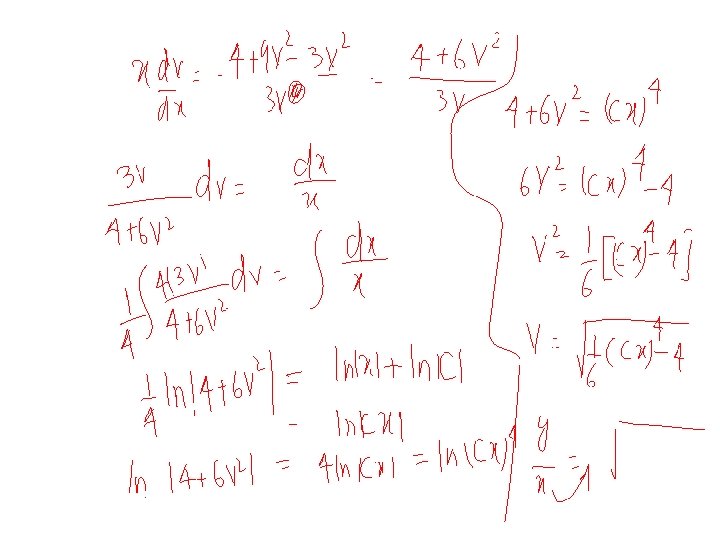 x dv/dx = 4+9v² - 3v² / 3v = 4+6v² / 3v
3v / 4+6v² dv = dx / x
1/4 ∫ 4(3v) / 4+6v² dv = ∫ dx / x
1/4 ln|4+6v²| = ln|x| + ln|C|
= ln|Cx|
ln |4+6v²| = 4ln|Cx| = ln(Cx)⁴
4+6v² = (Cx)⁴
6v² = (Cx)⁴ - 4
v² = 1/6 [(Cx)⁴ - 4]
v = √1/6 (Cx)⁴ - 4
y/x = √